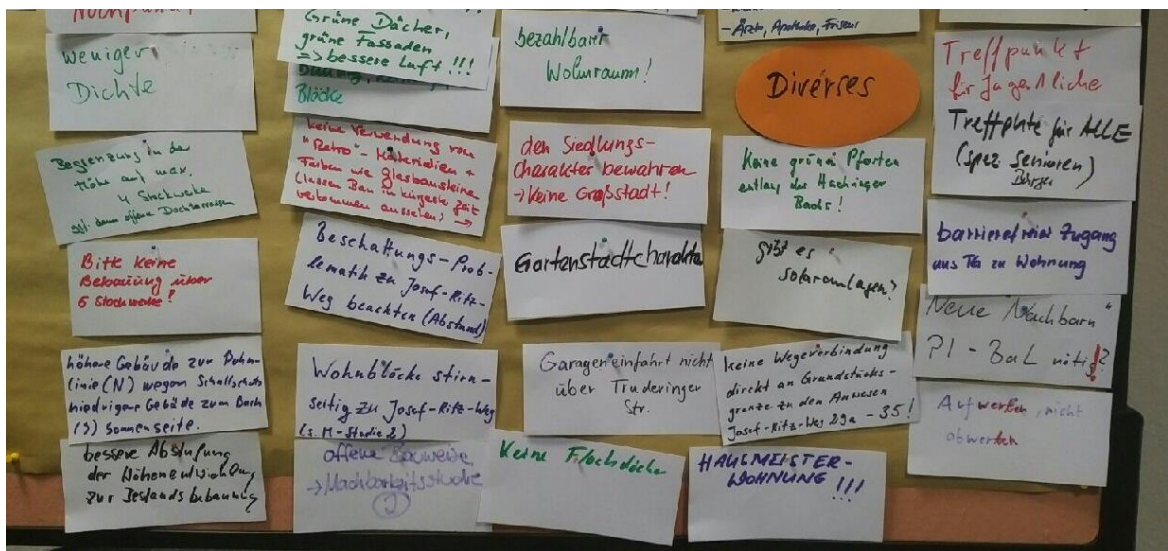 weniger
Dichte
Begrenzung in der
Höhe auf max.
4 Stockwerke
Bitte keine
Bebauung über
5 Stockwerke!
höhere Gebäude zur Bahn-
linie (N) wegen Schallschutz
niedrigere Gebäude zum Bach
(S) Sonnenseite.
bessere Abstufung
der Höhenentwicklung
zur Bestandsbebauung
Grüne Dächer,
grüne Fassaden
=> bessere Luft!!!
Blöcke
keine Verwendung von
"Retro"-Materialien +
Farben wie Glasbausteine
(lassen Bau in kürzester Zeit
verkommen aussehen) →
Beschattungs-Prob-
lematik zu Josef-Ritz-
Weg beachten (Abstand)
Wohnblöcke stirn-
seitig zu Josef-Ritz-Weg
(s. M-Studie 2)
offene Bauweise
→ Machbarkeitsstudie
2
bezahlbarer
Wohnraum!
den Siedlungs-
charakter bewahren
→ Keine Großstadt!
Gartenstadtcharakter
Garageneinfahrt nicht
über Truderinger
Str.
Keine Flachdächer
- Arzt, Apotheke, Friseur
Diverses
Keine grünen Pforten
entlang des Hachinger
Bachs!
gibt es
Solaranlagen?
keine Wegeverbindung
direkt an Grundstücks-
grenze zu den Anwesen
Josef-Ritz-Weg 29a - 35!
HAUSMEISTER-
WOHNUNG!!!
Treffpunkt
für Jugendliche
Treffpkte für ALLE
(spez Senioren)
Bürger
barrierefreier Zugang
aus TG zu Wohnung
"Neue Nachbarn"
PI-BaL nötig!?
Aufwerten, nicht
abwerten